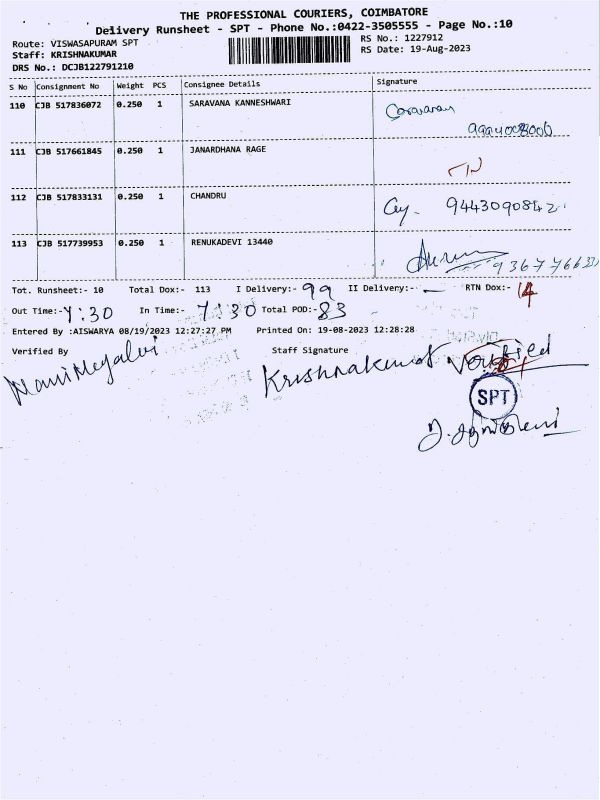 THE PROFESSIONAL COURIERS, COIMBATORE
Delivery Runsheet - SPT - Phone No.:0422-3505555 - Page No.:10
Route: VISWASAPURAM SPT
RS No.: 1227912
Staff: KRISHNAKUMAR
RS Date: 19-Aug-2023
DRS No.: DCJB122791210
S No Consignment No Weight PCS Consignee Details Signature
110 CJB 517836072 0.250 1 SARAVANA KANNESHWARI
111 CJB 517661845 0.250 1 JANARDHANA RAGE
112 CJB 517833131 0.250 1 CHANDRU 9443090842
113 CJB 517739953 0.250 1 RENUKADEVI 13440
Tot. Runsheet:- 10 Total Dox:- 113 I Delivery:- 99 II Delivery:- — RTN Dox:- 14
Out Time:- 4:30 In Time:- 7:30 Total POD:- 83
Entered By :AISWARYA 08/19/2023 12:27:27 PM Printed On: 19-08-2023 12:28:28
Verified By Staff Signature
Krishnakumar Verified
SPT